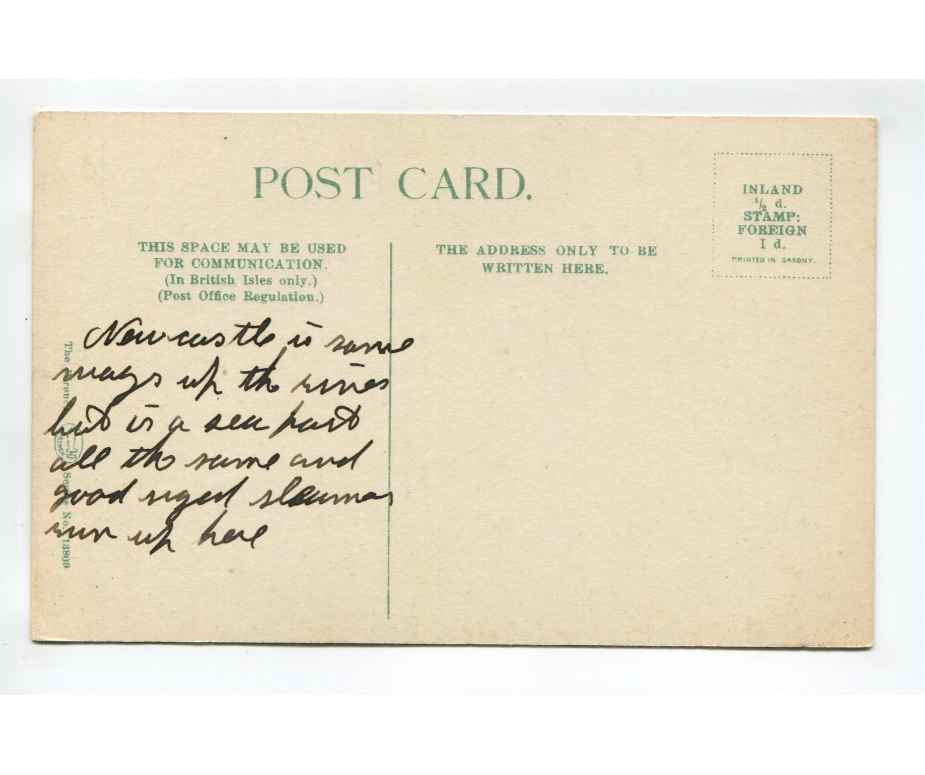 POST CARD.
INLAND
½ d.
STAMP:
FOREIGN
1 d.
PRINTED IN SAXONY.
THIS SPACE MAY BE USED
FOR COMMUNICATION.
(In British Isles only.)
(Post Office Regulation.)
THE ADDRESS ONLY TO BE
WRITTEN HERE.
Newcastle is some
ways up the river
but is a sea port
all the same and
good sized steamers
run up here
The
Series No.